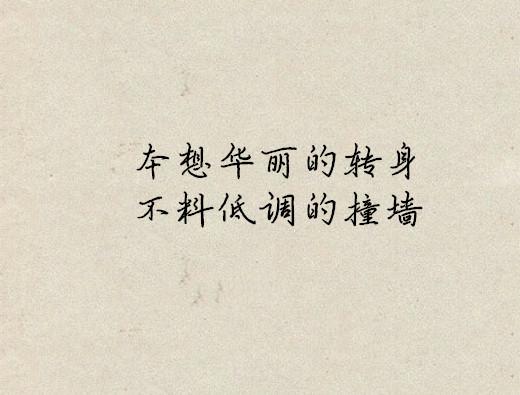 本想华丽的转身
不料低调的撞墙